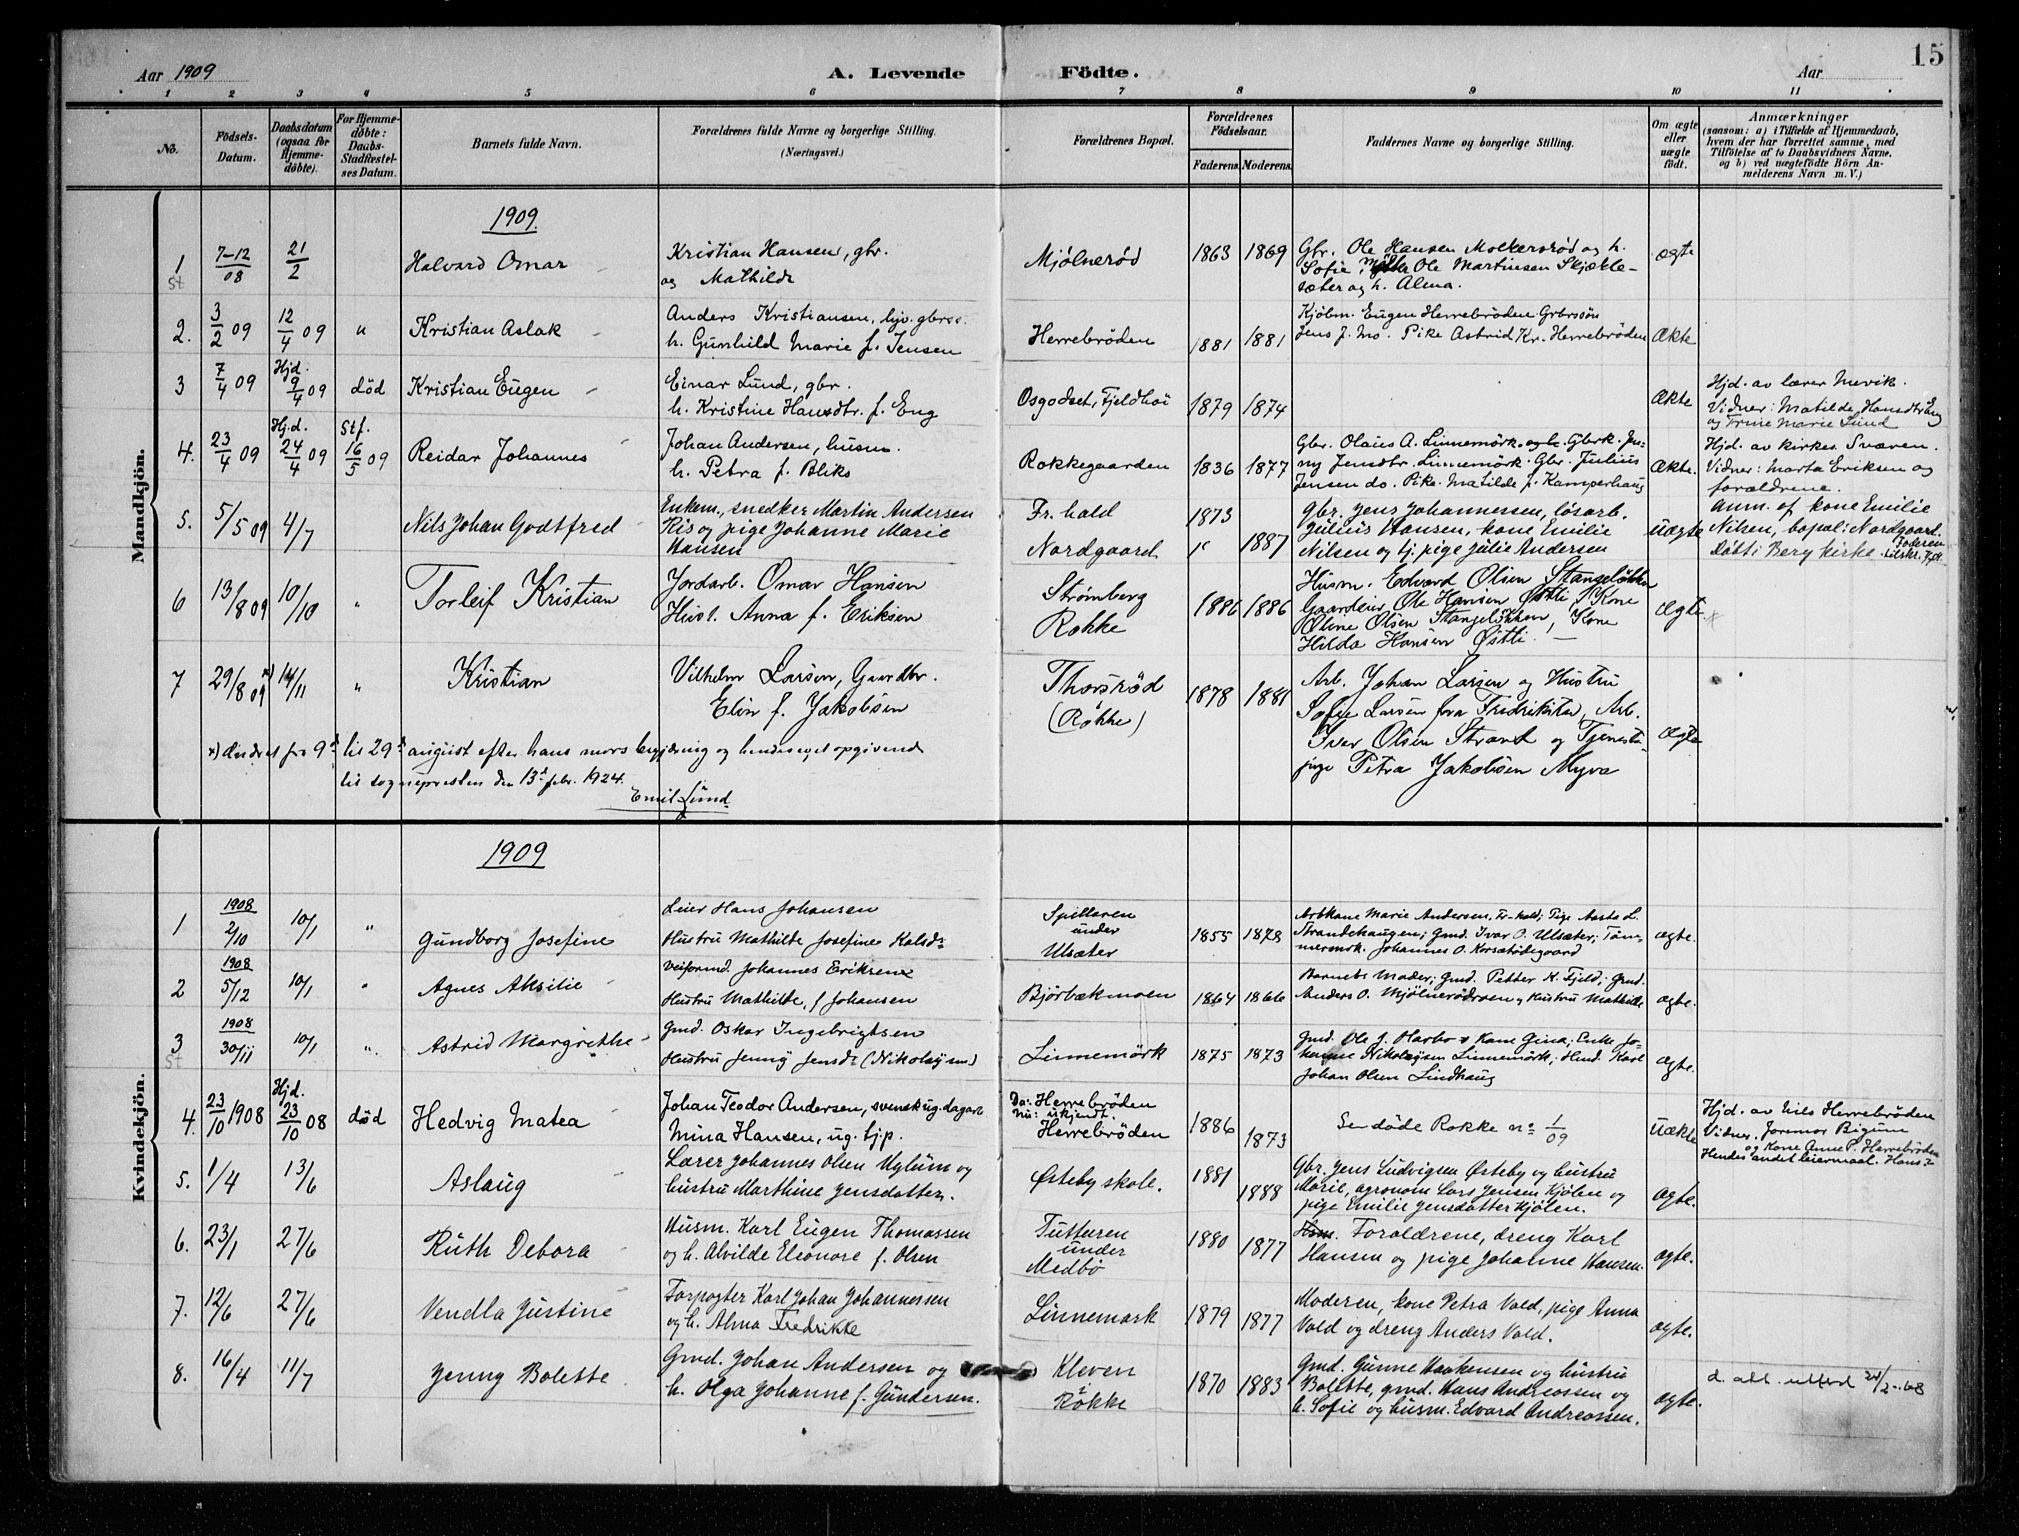 15
Aar 1909
A. Levende Födte.
Aar
1 2 3 4 5 6 7 8 9 10 11
No.
Födsels-Datum.
Daabsdatum (ogsaa for Hjemme-döbte).
For Hjemme-döbte: Daabs-Stadfæstel-ses Datum.
Barnets fulde Navn.
Forældrenes fulde Navne og borgerlige Stilling. (Næringsvei.)
Forældrenes Bopæl.
Forældrenes Födselsaar.
Faderens. Moderens.
Faddernes Navne og borgerlige Stilling.
Om ægte eller uægte födt.
Anmærkninger
(saasom: a) i Tilfælde af Hjemmedaab, hvem der har forrettet samme, med Tilföielse af to Daabsvidners Navne, og b) ved uægtefödte Börn Anmelderens Navn m. V.)
Mandkjön.
1909.
1 7-12/08 21/2 Halvard Omar
Kristian Hansen, gbr. og Mathilde
Mjölneröd 1863 1869
Gbr. Ole Hansen Molkersröd og h.
Sofie, Ole Martinsen Skjækle-
sæter og h. Alma.
ægte
St
2. 3/2 09 12/4 09 " Kristian Aslak
Anders Kristiansen, gbrss.
h. Gunhild Marie f. Jensen
Herrebröden 1881 1881
Kjöbm. Eugen Herrebröden Grbrssön
Jens J. Mo. Pike Astrid Kr. Herrebröden
Ækte
3 7/4 09 Hjd. 9/4 09 död Kristian Eugen
Einar Lund, gbr.
h. Kristine Hansdtr. f. Eng
Osgodset, Fjeldhöi 1879 1874
Ækte
Hjd. av lærer Mevik.
Vidner: Matilde Hansdtr Eng
og Trine Marie Lund
4. 23/4 09 Hj.d. 24/4 09 Stf. 16/5 09 Reidar Johannes
Johan Andersen, husm.
h. Petra f. Bliks
Rokkegaarden 1836 1877
Gbr. Olaus A. Linnemörk. og h. Gbrk. Jen-
ny Jensdtr. Linnemörk. Gbr. Julius
Jensen do. Pike. Matilde J. Kamperhaug
Ækte.
Hjd. av kirkes. Sværen.
Vidner: Marta Eriksen og
forældrene.
5. 5/5 09 4/7 Nils Johan Godtfred
Enkem., snedker Martin Andersen
Ris og pige Johanne Marie
Hansen
Fr. hald
Nordgaard 1873 1887
Gbr. Jens Johannessen, lösarb.
Julius Hansen, kone Emilie
Nilsen og tj. pige Julie Andersen
Uægte
Anm. af kone Emilie
Nilsen, bopæl: Nordgaard.
Döbt i Berg kirke. Faderen
6 13/8 09 10/10 " Torleif Kristian
Jordarb. Omar Hansen
Hust. Anna f. Eriksen
Strömberg
Rokke 1886 1886
Husm. Edvard Olsen Stangelökken
Gaardeier Ole Hansen Østli, Kone
Oline Olsen Stangelökken, Kone
Hilda Hansen Østli. —
Ægte.
7 29/8 09 x) 14/11 " Kristian
Vilhelm Larsen, Gaardbr.
Elin f. Jakobsen
Thorsröd
(Rökke) 1878 1881
Arb. Johan Larsen og Hustru
Sofie Larsen fra Fredrikstad, Arb.
Iver Olsen Strand og Tjeneste-
pige Petra Jakobsen Myra
Ægte
x) Ændret fra 9d til 29d august efter hans mors begjæring og hendes eget opgivend
til sognepresten den 13d febr. 1924.
Emil Lund
Kvindekjön.
1909
1 1908 2/10 10/1 " Gundborg Josefine
Leier Hans Johansen
Hustru Mathilde Josefine Kalsdr
Spillaren
under
Ulsæter 1855 1878
Arbkone Marie Andersen, Fr-hald; Pige Aasta L.
Strandehaugen; Gmd. Ivar O. Ulsæter; Töm-
mermk. Johannes O. Korsetödegaard
ægte.
2 1908 5/12 10/1 " Agnes Aksilie
Veiformd. Johannes Eriksen
Hustru Mathilde f. Johansen
Björbækmoen 1864 1866
Barnets Moder; Gmd. Petter H. Fjeld; Gmd.
Anders O. Mjölnerödsen og Hustru Mathilde
ægte.
3 1908 30/11 10/1 " Astrid Margrethe
Gmd. Oskar Ingebrigtsen
Hustru Jenny Jensdr (Nikolaysen)
Linnemörk 1875 1873
Gmd. Ole J. Harbo & Kone Gina; Enke Jo-
hanne Nikolaysen Linnemörk; Gmd. Karl
Johan Olsen Lindhaug
ægte.
St
4. 23/10 1908 Hjd. 23/10 08 död Hedvig Matea
Johan Teodor Andersen, svensk ug. dagarb.
Mina Hansen, ug. tjp.
Da: Herrebröden
Nu: ukjendt.
Herrebröden 1886 1873
Se döde Rokke no 1/09
Uækte
Hjd. av Nils Herrebröden
Vidner. Jormor Bigum
og Kone Anne P. Herrebröden
Hendes andet leiermaal.
5. 1/4 13/6 Aslaug
Lærer Johannes Olsen Uglum og
hustru Marthine Jensdatter.
Østeby skole. 1881 1888
Gbr. Jens Ludvigsen Østeby og hustru
Marie, agronom Lars Jensen Kjölen og
pige Emilie Jensdatter Kjölen.
ægte.
6. 23/1 27/6 Ruth Debora
Husm. Karl Eugen Thomassen
og h. Alvilde Eleonore f. Olsen
Tutturen
under
Medbö 1880 1877
Hsm. Foraldrene, dreng Karl
Hansen og pige Johanne Hansen.
ægte.
7. 12/6 27/6 Vendla Justine
Forpagter Karl Johan Johannessen
og h. Alma Fredrikke
Linnemark 1879 1877
Moderen, kone Petra Vold, pige Anna
Vold og dreng Anders Vold.
ægte.
8. 16/4 11/7 Jenny Bolette
Gmd. Johan Andersen og
h. Olga Johanne f. Gundersen.
Kleven
i
Rokke 1870 1883
Gmd. Gunne Haakensen og hustru
Bolette, gmd. Hans Andreassen og
h. Sofie og husm. Edvard Andreassen.
ægte.
d. att. utferd 24/2-68